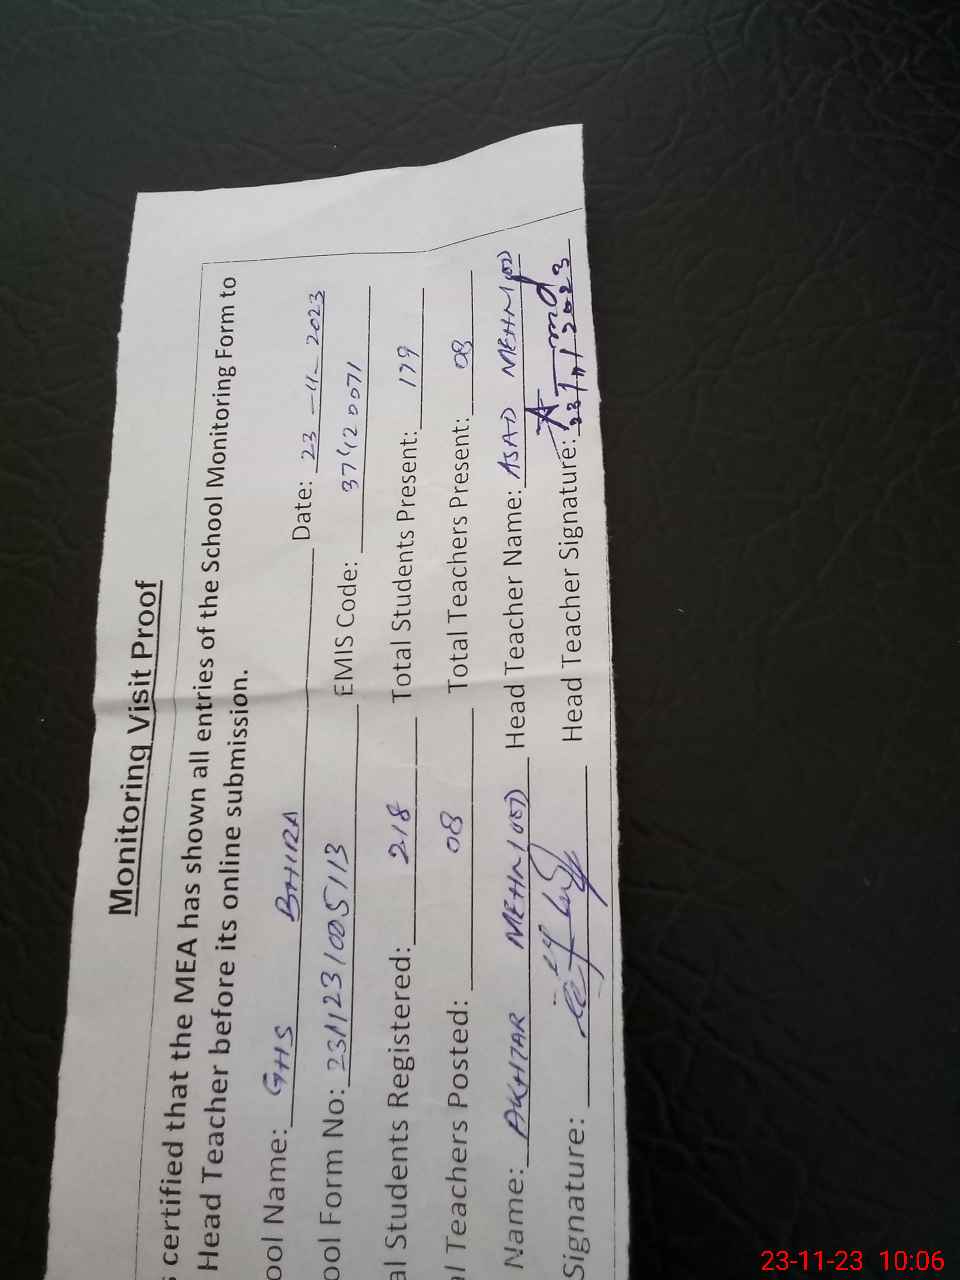 Monitoring Visit Proof
certified that the MEA has shown all entries of the School Monitoring Form to
Head Teacher before its online submission.
ool Name: GHS BHIRA Date: 23-11-2023
ool Form No: EMIS Code: 37420071
al Students Registered: 218 Total Students Present: 179
l Teachers Posted: 08 Total Teachers Present: 08
Name: AKHTAR MEHMOOD Head Teacher Name: ASAD MEHMOOD
Signature: Head Teacher Signature: 23/11/2023
23-11-23 10:06